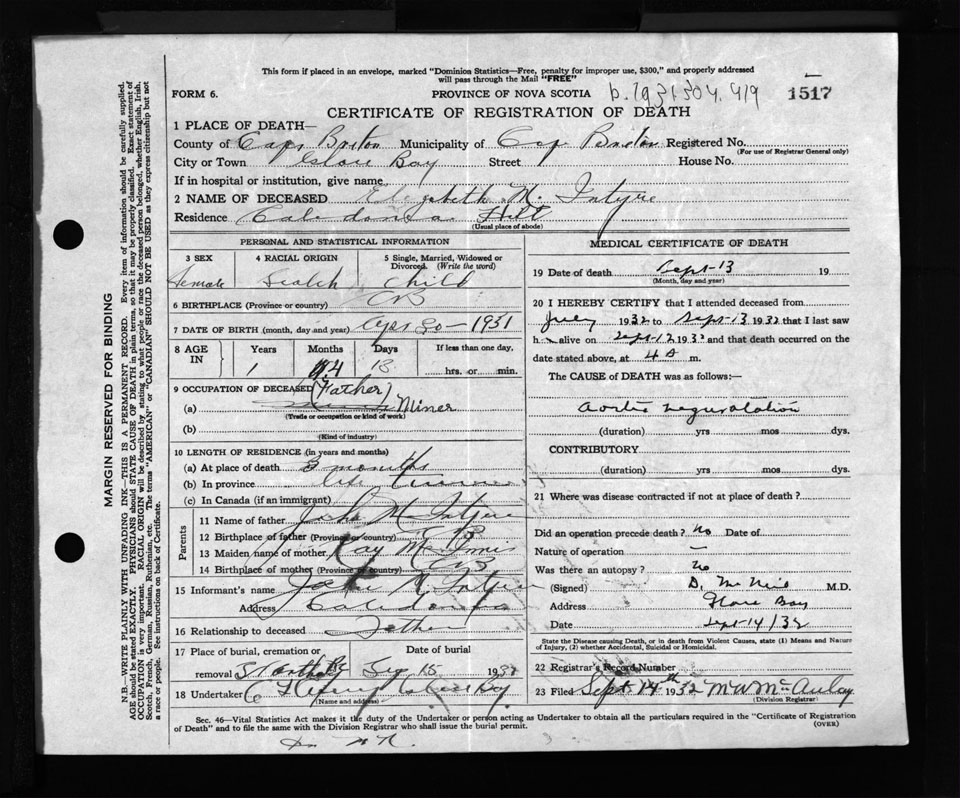 This form if placed in an envelope, marked "Dominion Statistics—Free, penalty for improper use, $300," and properly addressed
will pass through the Mail "FREE"
FORM 6. PROVINCE OF NOVA SCOTIA b.1931 504.419 1517
CERTIFICATE OF REGISTRATION OF DEATH
1 PLACE OF DEATH—
County of Cape Breton Municipality of Cap Breton Registered No.
(For use of Registrar General only)
City or Town Glace Bay Street House No.
If in hospital or institution, give name
2 NAME OF DECEASED Elizabeth Mc Intyre
Residence Caledonia
(Usual place of abode)
PERSONAL AND STATISTICAL INFORMATION
3 SEX 4 RACIAL ORIGIN 5 Single, Married, Widowed or Divorced. (Write the word)
Female Scotch Child
6 BIRTHPLACE (Province or country) CB
7 DATE OF BIRTH (month, day and year) Apr 30 - 1931
8 AGE IN Years Months Days If less than one day,
1 4 13 hrs. or min.
9 OCCUPATION OF DECEASED (Father)
(a) Miner
(Trade or occupation or kind of work)
(b)
(Kind of industry)
10 LENGTH OF RESIDENCE (in years and months)
(a) At place of death 3 months
(b) In province life time
(c) In Canada (if an immigrant)
Parents
11 Name of father John Mc Intyre
12 Birthplace of father (Province or country) CB
13 Maiden name of mother Kay Mc Innis
14 Birthplace of mother (Province or country) CB
15 Informant's name John Mc Intyre
Address Caledonia
16 Relationship to deceased Father
17 Place of burial, cremation or removal Date of burial
Sep 15 1932
18 Undertaker Glace Bay
(Name and address)
MEDICAL CERTIFICATE OF DEATH
19 Date of death Sept-13 19
(Month, day and year)
20 I HEREBY CERTIFY that I attended deceased from
July 1932 to Sept-13 1932 that I last saw
h alive on Sept-12 1932 and that death occurred on the
date stated above, at 4 a m.
The CAUSE of DEATH was as follows:—
Aortic regurgitation
(duration) yrs mos dys.
CONTRIBUTORY
(duration) yrs mos dys.
21 Where was disease contracted if not at place of death?
Did an operation precede death? No Date of
Nature of operation —
Was there an autopsy? No
(Signed) D. McNeil M.D.
Address Glace Bay
Date Sept-14/32
State the Disease causing Death, or in death from Violent Causes, state (1) Means and Nature
of Injury, (2) whether Accidental, Suicidal or Homicidal.
22 Registrar's Record Number
23 Filed Sept 14th 1932 M W McAulay
(Division Registrar)
Sec. 46—Vital Statistics Act makes it the duty of the Undertaker or person acting as Undertaker to obtain all the particulars required in the "Certificate of Registration
of Death" and to file the same with the Division Registrar who shall issue the burial permit. (OVER)
MARGIN RESERVED FOR BINDING
N.B.—WRITE PLAINLY WITH UNFADING INK—THIS IS A PERMANENT RECORD. Every item of information should be carefully supplied.
AGE should be stated EXACTLY. PHYSICIANS should STATE CAUSE OF DEATH in plain terms, so that it may be properly classified. Exact statement of
OCCUPATION is very important. RACIAL ORIGIN will be described by stating to what people or race the deceased person belonged, whether English, Irish,
Scotch, French, German, Russian, Ruthenian, etc. The terms "AMERICAN" or "CANADIAN" SHOULD NOT BE USED as they express citizenship but not
a race or people. See instructions on back of Certificate.